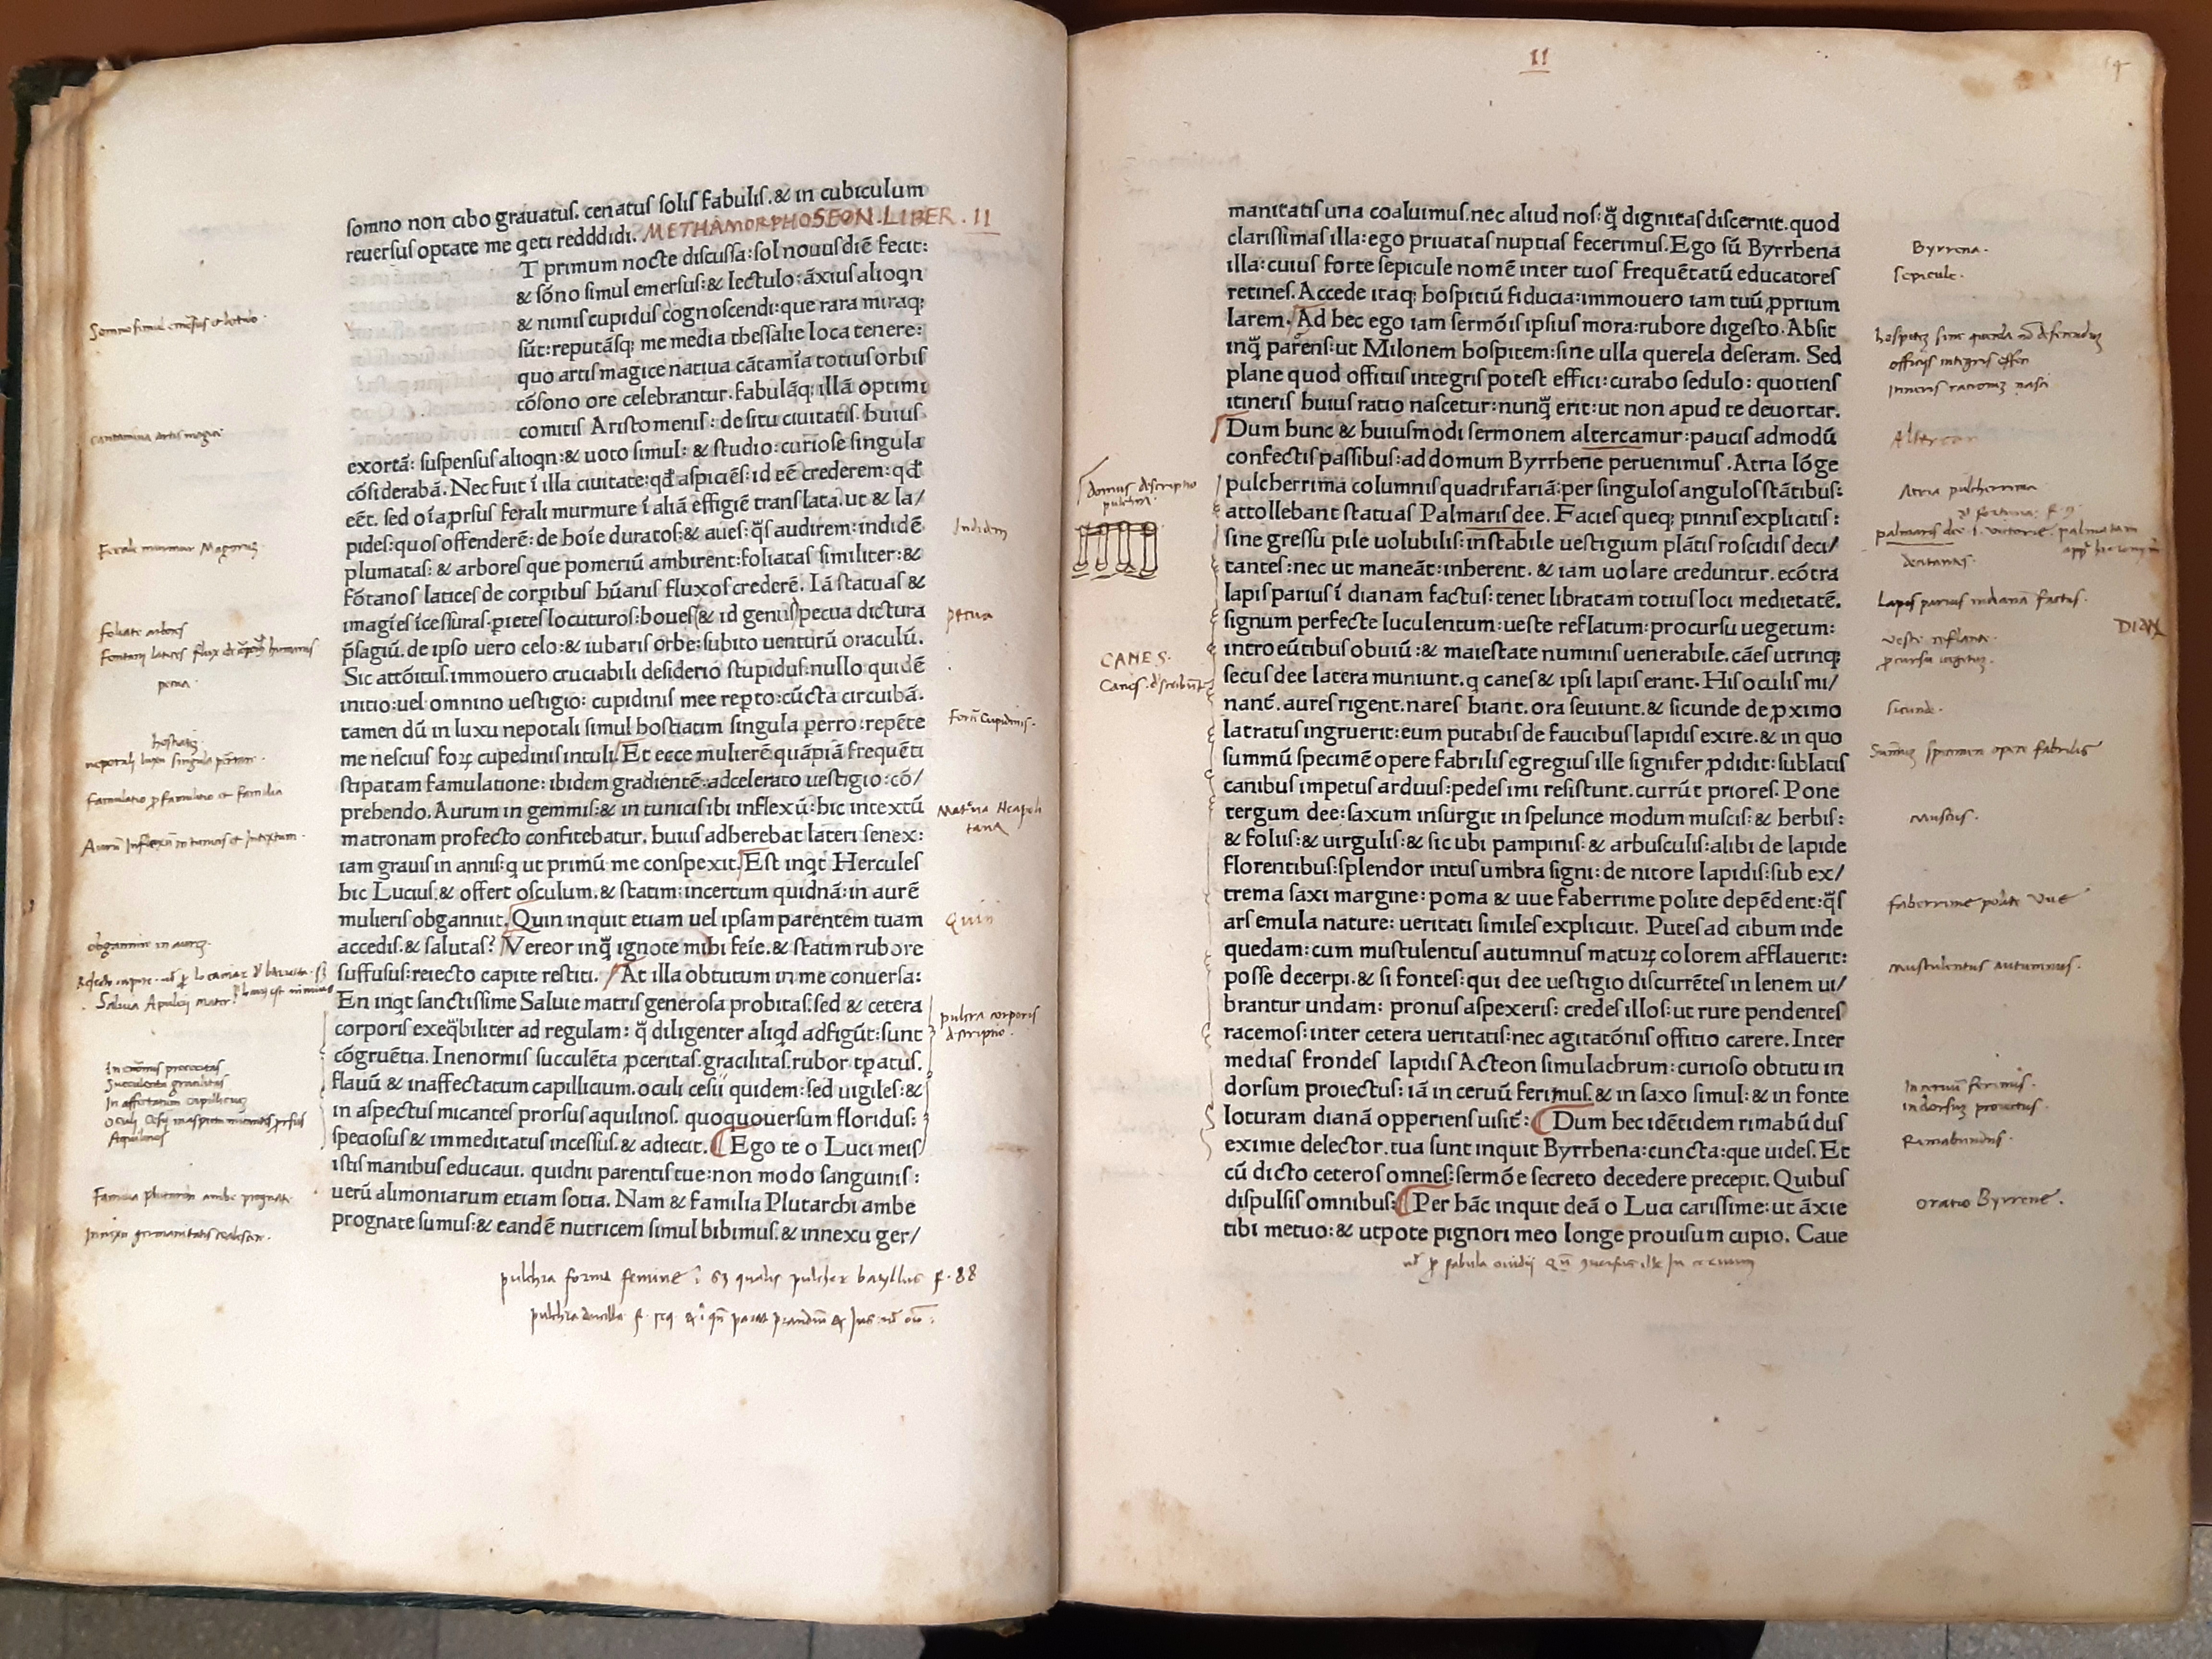 somno non cibo grauatus. cenatus solis fabulis. & in cubiculum
reuersus optate me qeti redddidi. METHAMORPHOSEON. LIBER. II
T primum nocte discussa: sol nouus diē fecit:
& sōno simul emersus: & lectulo: āxius alioqn
& nimis cupidus cognoscendi: que rara miraq;
sūt: reputāsq; me media thessalie loca tenere:
quo artis magice natiua cātamīa totius orbis
cōsono ore celebrantur. fabulāq; illā optimi
comitis Aristomenis: de situ ciuitatis huius
exortā: suspensus alioqn: & uoto simul: & studio: curiose singula
cōsiderabā. Nec fuit ī illa ciuitate: qđ aspiciēs: id eē crederem: qđ
eēt. sed oīa prsus ferali murmure ī aliā effigiē translata. ut & la/
pides: quos offenderē: de hoīe duratos: & aues: qs audirem: indidē
plumatas: & arbores que pomeriū ambirent: foliatas similiter: &
fōtanos latices de corpibus hūanis fluxos crederē. Iā statuas &
imagīes īcessuras. pietes locuturos: boues & id genus pecua dictura
p̄sagiū. de ipso uero celo: & iubaris orbe: subito uenturū oraculū.
Sic attōitus. immouero cruciabili desiderio stupidus: nullo quidē
initio: uel omnino uestigio: cupidinis mee repto: cūcta circuibā.
tamen dū in luxu nepotali simul hostiatim singula perro: repēte
me nescius foꝝ cupedinis intuli. Et ecce mulierē quāpiā frequēti
stipatam famulatione: ibidem gradientē: adcelerato uestigio: cō/
prehendo. Aurum in gemmis: & in tunicis ibi inflexū: hic intextū
matronam profecto confitebatur. huius adherebat lateri senex:
iam grauis in annis: q ut primū me conspexit. Est inqt Hercules
hic Lucius. & offert osculum. & statim: incertum quidnā: in aurē
mulieris obganniit. Quin inquit etiam uel ipsam parentem tuam
accedis. & salutas? Vereor inq̄ ignote mihi feīe. & statim rubore
suffusus: reiecto capite restiti. At illa obtutum in me conuersa:
En inqt sanctissime Saluie matris generosa probitas. sed & cetera
corporis exeq̄biliter ad regulam: q̄ diligenter aliqd adfigūt: sunt
cōgruētia. Inenormis succulēta proceritas. gracilitas. rubor tpatus.
flauū & inaffectatum capillicium. oculi cesii quidem: sed uigiles: &
in aspectus micantes prorsus aquilinos. quoquouersum floridus:
speciosus & immeditatus incessus. & adiecit. Ego te o Luci meis
istis manibus educaui. quidni parentis tue: non modo sanguinis:
uerū alimoniarum etiam sotia. Nam & familia Plutarchi ambe
prognate sumus: & eandē nutricem simul bibimus. & innexu ger/
Somno simul emersus et lectulo
cantamina artis magice
Ferale murmur Magorum
foliate arbores
pecua
hostiatim
Famulatio
obgannire in aurem
pecua
Quin
pulcra corporis
descriptio
Oculi
Aquilinos
pulchra forma femine
II
manitatis una coaluimus. nec aliud nos: q̄ dignitas discernit. quod
clarissimas illa: ego priuatas nuptias fecerimus. Ego sū Byrrhena
illa: cuius forte sepicule nomē inter tuos frequētatū educatores
retines. Accede itaq; hospitiū fiducia: immouero iam tuū pprium
larem. Ad hec ego iam sermōis ipsius mora: rubore digesto. Absit
inq̄ parens: ut Milonem hospitem: sine ulla querela deseram. Sed
plane quod offitiis integris potest effici: curabo sedulo: quotiens
itineris huius ratio nascetur: nunq̄ erit: ut non apud te deuortar.
Dum hunc & huiusmodi sermonem altercamur: paucis admodū
confectis passibus: ad domum Byrrhene peruenimus. Atria lōge
pulcherrima columnis quadrifariā: per singulos angulos stātibus:
attollebant statuas Palmaris dee. Facies queq; pinnis explicitis:
sine gressu pile uolubilis: instabile uestigium plātis roscidis deci/
tantes: nec ut maneāt: inherent. & iam uolare creduntur. ecōtra
lapis parius ī dianam factus: tenet libratam totius loci medietatē.
signum perfecte luculentum: ueste reflatum: procursu uegetum:
introeūtibus obuiū: & maiestate numinis uenerabile. cāes utrinq;
secus dee latera muniunt. q canes & ipsi lapis erant. His oculis mi/
nant. aures rigent. nares hiant. ora seuiunt. & sicunde de pximo
latratus ingruerit: eum putabis de faucibus lapidis exire. & in quo
summū specimē opere fabrilis egregius ille signifer pdidit: sublatis
canibus impetus arduus: pedes imi resistunt. currūt priores. Pone
tergum dee: saxum insurgit in spelunce modum muscis: & herbis:
& foliis: & uirgulis: & sic ubi pampinis: & arbusculis: alibi de lapide
florentibus: splendor intus umbra signi: de nitore lapidis: sub ex/
trema saxi margine: poma & uue faberrime polite depēdent: qs
ars emula nature: ueritati similes explicuit. Putes ad cibum inde
quedam: cum mustulentus autumnus matuꝝ colorem afflauerit:
posse decerpi. & si fontes: qui dee uestigio discurrētes in lenem ui/
brantur undam: pronus aspexeris: credes illos: ut rure pendentes
racemos: inter cetera ueritatis: nec agitatōnis offitio carere. Inter
medias frondes lapidis Acteon simulachrum: curioso obtutu in
dorsum proiectus: iā in ceruū ferimus. & in saxo simul: & in fonte
loturam dianā opperiens uisit̄: Dum hec idētidem rimabūdus
eximie delector. tua sunt inquit Byrrhena: cuncta: que uides. Et
cū dicto ceteros omnes: sermōe secreto decedere precepit. Quibus
dispulsis omnibus: Per hāc inquit deā o Luci carissime: ut āxie
tibi metuo: & utpote pignori meo longe prouisum cupio. Caue
domus descriptio
CANES.
Byrrena.
sepicule.
Atria pulcherrima
Lapis parius in dianā factus.
sicunde.
Muscus.
faberrime polite Vue
mustulentus autumnus.
In ceruū ferimus.
Rimabundus.
oratio Byrrene.